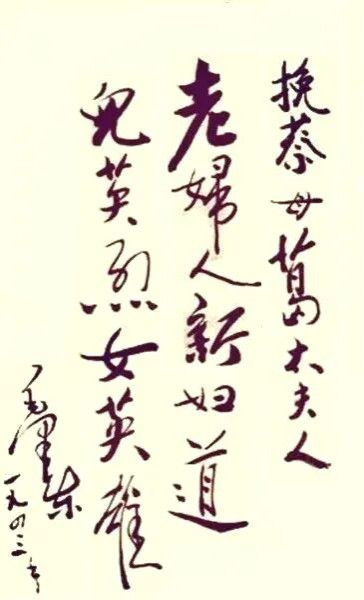 挽蔡母葛太夫人
老婦人新妇道
儿英烈女英雄
毛泽东
一九四三年